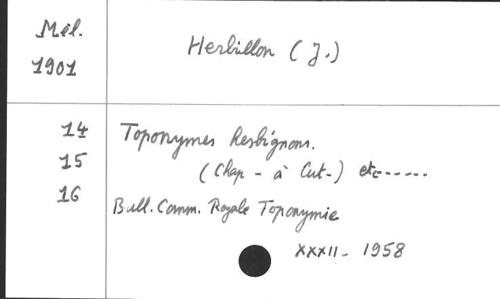 Mél.
1901
Herbillon (J.)
14
15
16
Toponymes hesbignons.
(Chap - à Cut-) etc------
Bull. Comm. Royale Toponymie
XXXII - 1958